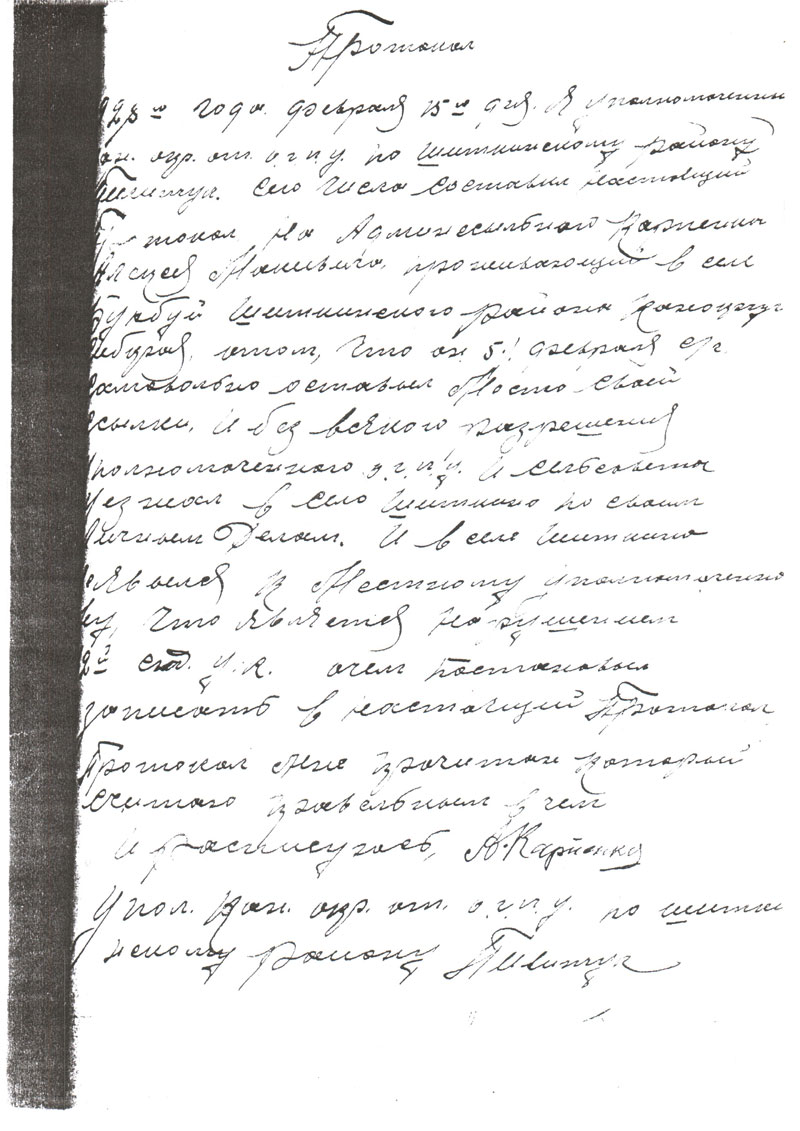 Протокол
1928 го года февраля 15 го дня. Я уполномоченный
Кан. окр. от. о.г.п.у. по Шиткинскому району
сего числа составил настоящий
Протокол на Админссыльного Карпенко
Алексея проживающий в селе
Бунбуй Шиткинского района Канокруга
Сибкрая, отом, что он 5/ февраля с/г.
самовольно оставил место своей
ссылки, и без всякого разрешения
уполномоченного о.г.п.у. и сельсовета
уезжал в село Шиткино по своим
личным Делам. И в селе Шиткино
явился к местному уполномоченно
му, что является нарушением
ст. У.К. очем постановил
записать в настоящий Протокол
Протокол мне прочитан которой
считаю правельным в чем
и расписуюсь, А. Карпенко
Упол. Кан. окр. от. о.г.п.у. по шитки
нскому району